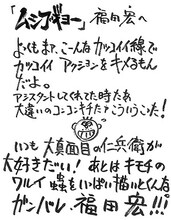 「ムシブギョー」福田宏へ
よくもまァ、こんなカッコイイ線で
カッコイイアクションをキメるもん
だよ。
アシスタントしてくれてた時たぁ
大違いのコンコンキチだァこういうこた!
いつも大真面目の仁兵衛が
大好きだい!あとはキモチの
ワルイ蟲をいっぱい描いとくんな
ガンバレ福田宏!!!